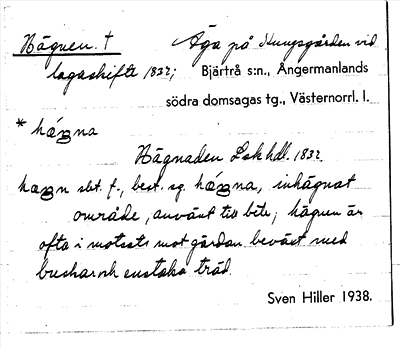 Hägnen. † Äga på Kungsgården vid
lagaskifte 1832; Bjärtrå s:n., Ångermanlands
södra domsagas tg., Västernorrl. l.
* hágna
Hägnaden Lsk hdl. 1832.
hagn sbt. f., best. sg. hágna, inhägnat
område, använt till bete; hägnen är
ofta i motsats mot gärdan beväxt med
buskar och enstaka träd.
Sven Hiller 1938.